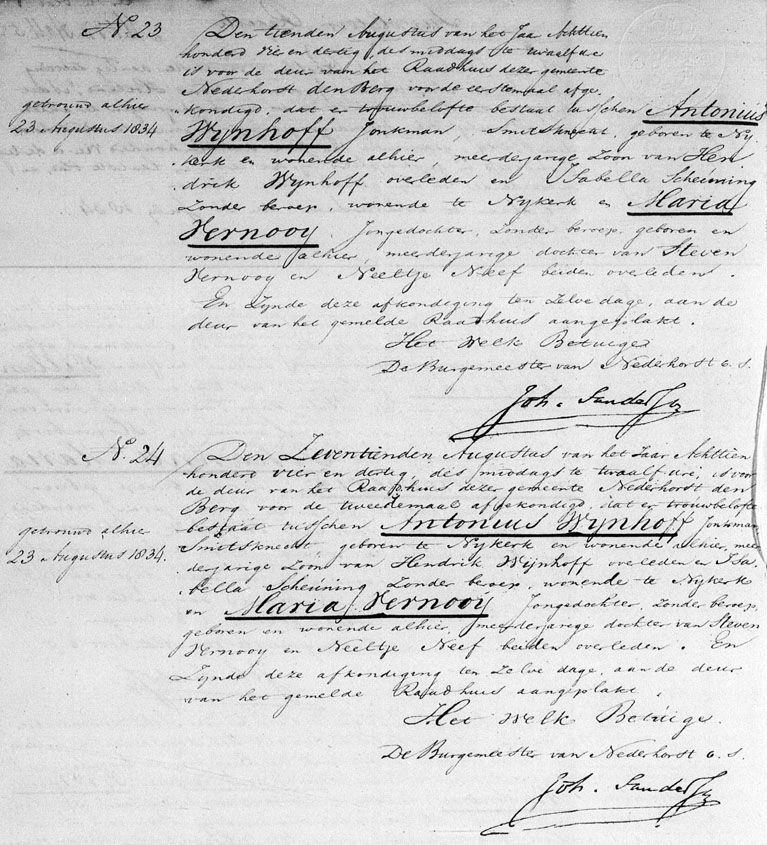 No. 23
Den tienden Augustus van het Jaar Achttien
honderd vier en dertig, des middags te twaalf ure
is voor de deur van het Raadhuis dezer gemeente
Nederhorst den Berg voor de eerstemaal afge
kondigd, dat er trouwbelofte bestaat tusschen Antonius
getrouwd alhier
23 Augustus 1834
Wynhoff Jonkman, Smitsknecht, geboren te Ny
kerk en wonende alhier, meerderjarige Zoon van Hen
drick Wynhoff overleden en Isabella Scheúning
Zonder beroep, wonende te Nykerk en Maria
Vernooy Jongedochter, Zonder beroep, geboren en
wonende alhier, meerderjarige dochter van Steven
Vernooy en Neeltje Neef beiden overleden.
En Zynde deze afkondiging ten Zelve dage, aan de
deur van het gemelde Raadhuis aangeplakt.
Het Welk Betuige
De Burgemeester van Nederhorst o. s.
Joh. Sander Jz
No. 24
Den Zeventienden Augustus van het Jaar Achttien
hondert vier en dertig, des middags te twaalf ure, is voor
de deur van het Raadhuis dezer gemeente Nederhorst den
Berg voor de tweedemaal afgekondigd, dat er trouwbelofte
bestaat tusschen Antonius Wynhoff Jonkman,
getrouwd alhier
23 Augustus 1834.
Smitsknecht geboren te Nykerk en wonende alhier, meer
derjarige Zoon van Hendrick Wijnhoff overleden en Isa
bella Scheúning Zonder beroep, wonende te Nykerk
en Maria Vernooij Jongedochter, Zonder beroep,
geboren en wonende alhier, meerderjarige dochter van Steven
Vernooy en Neeltje Neef beiden overleden. En
Zynde deze afkondiging ten Zelve dage, aan de deur
van het gemelde Raadhuis aangeplakt,
Het Welk Betúige.
De Burgemeester van Nederhorst o. s.
Joh. Sander Jz